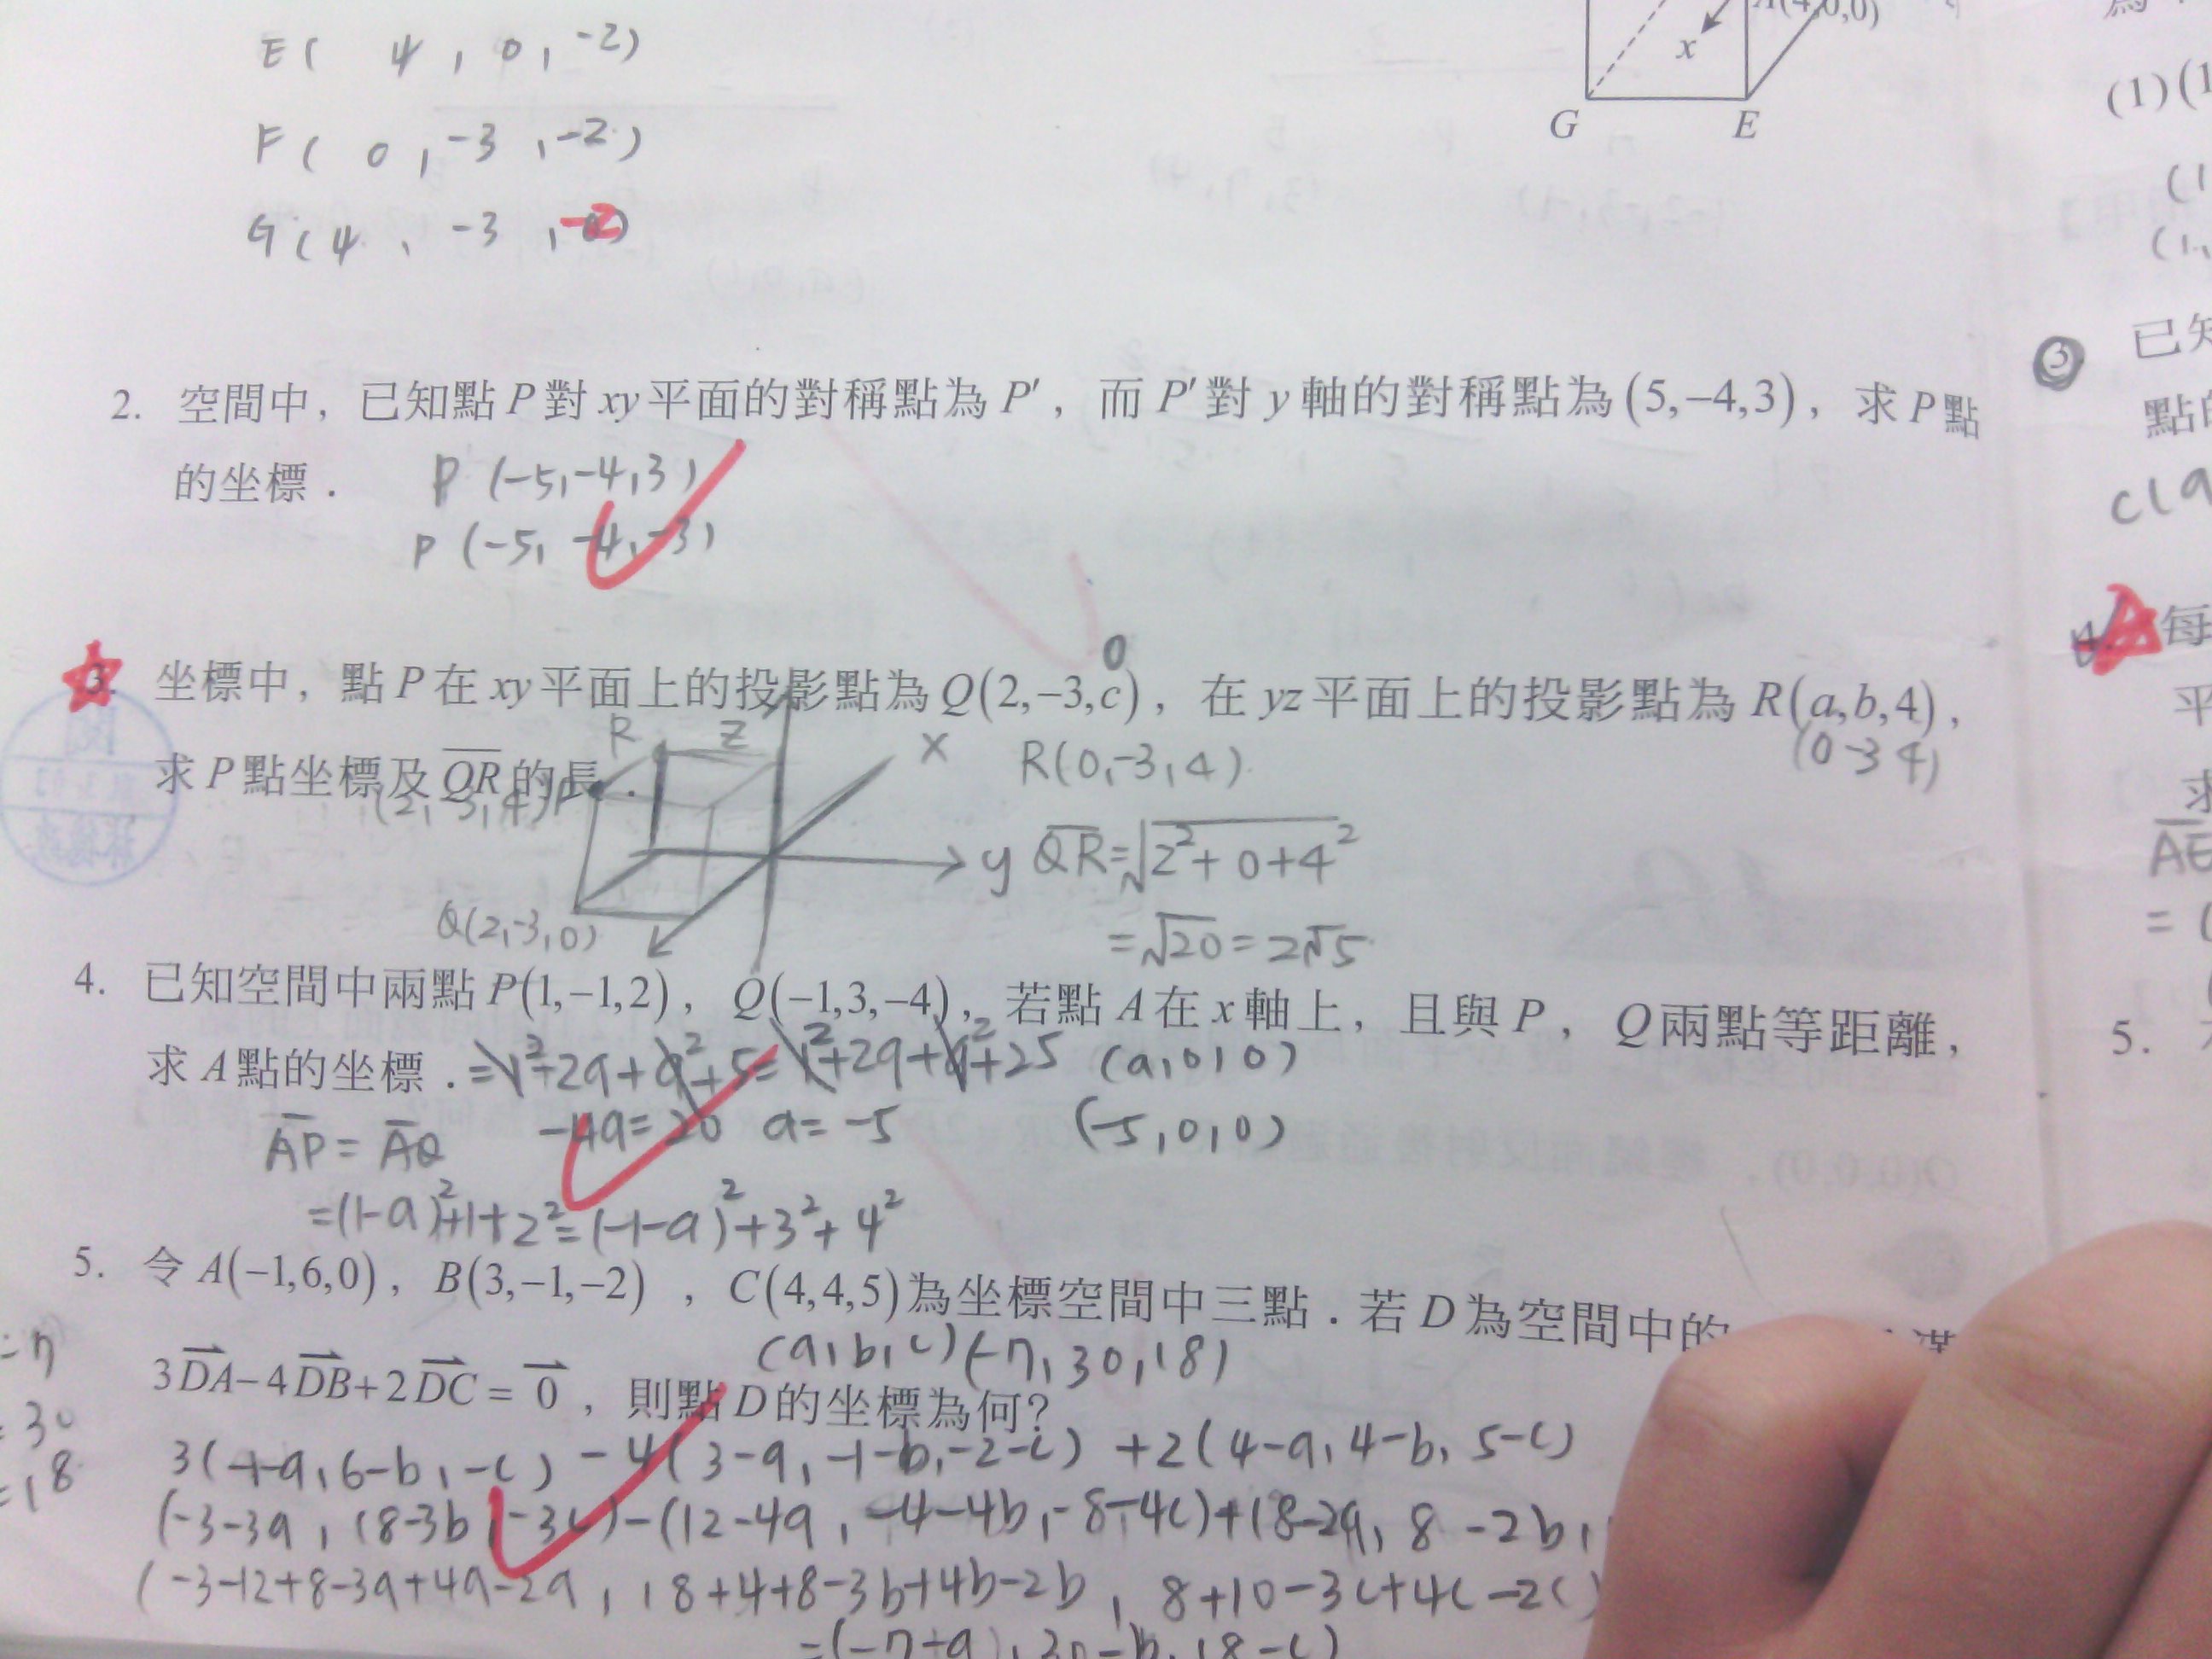 E( 4 , 0 , -2)
F( 0 , -3 , -2)
G(4 , -3 , -2)
A(4,0,0)
x
G E
2. 空間中，已知點 P 對 xy 平面的對稱點為 P′，而 P′ 對 y 軸的對稱點為 (5,−4,3)，求 P 點
的坐標．
P (-5,-4,3)
P (-5,-4,-3)
3. 坐標中，點 P 在 xy 平面上的投影點為 Q(2,−3,c)，在 yz 平面上的投影點為 R(a,b,4)，
0
(0 -3 4)
求 P 點坐標及 QR 的長．
R z x
R(0,-3,4)
(2,-3,4)P
y
QR=√2²+0+4²
Q(2,-3,0)
=√20=2√5
4. 已知空間中兩點 P(1,−1,2)，Q(−1,3,−4)，若點 A 在 x 軸上，且與 P，Q 兩點等距離，
求 A 點的坐標．
=1²-2a+a²+5=1²+2a+a²+25 (a,0,0)
AP = AQ -4a=20 a=-5 (-5,0,0)
=(1-a)²+1+2²=(-1-a)²+3²+4²
5. 令 A(−1,6,0)，B(3,−1,−2)，C(4,4,5)為坐標空間中三點．若 D 為空間中的
(a,b,c)(-7,30,18)
3DA−4DB+2DC=0，則點 D 的坐標為何?
3(-1-a,6-b,-c) -4(3-a,-1-b,-2-c) +2(4-a,4-b,5-c)
(-3-3a,18-3b,-3c)-(12-4a,-4-4b,-8-4c)+(8-2a,8-2b,
(-3-12+8-3a+4a-2a,18+4+8-3b+4b-2b,8+10-3c+4c-2c)
=(-7-a,30-b,18-c)
=7
=30
=18
(1)(1
(1
(1,
3 已知
點的
C(a
4. 每
平
求
AE
= (
5.